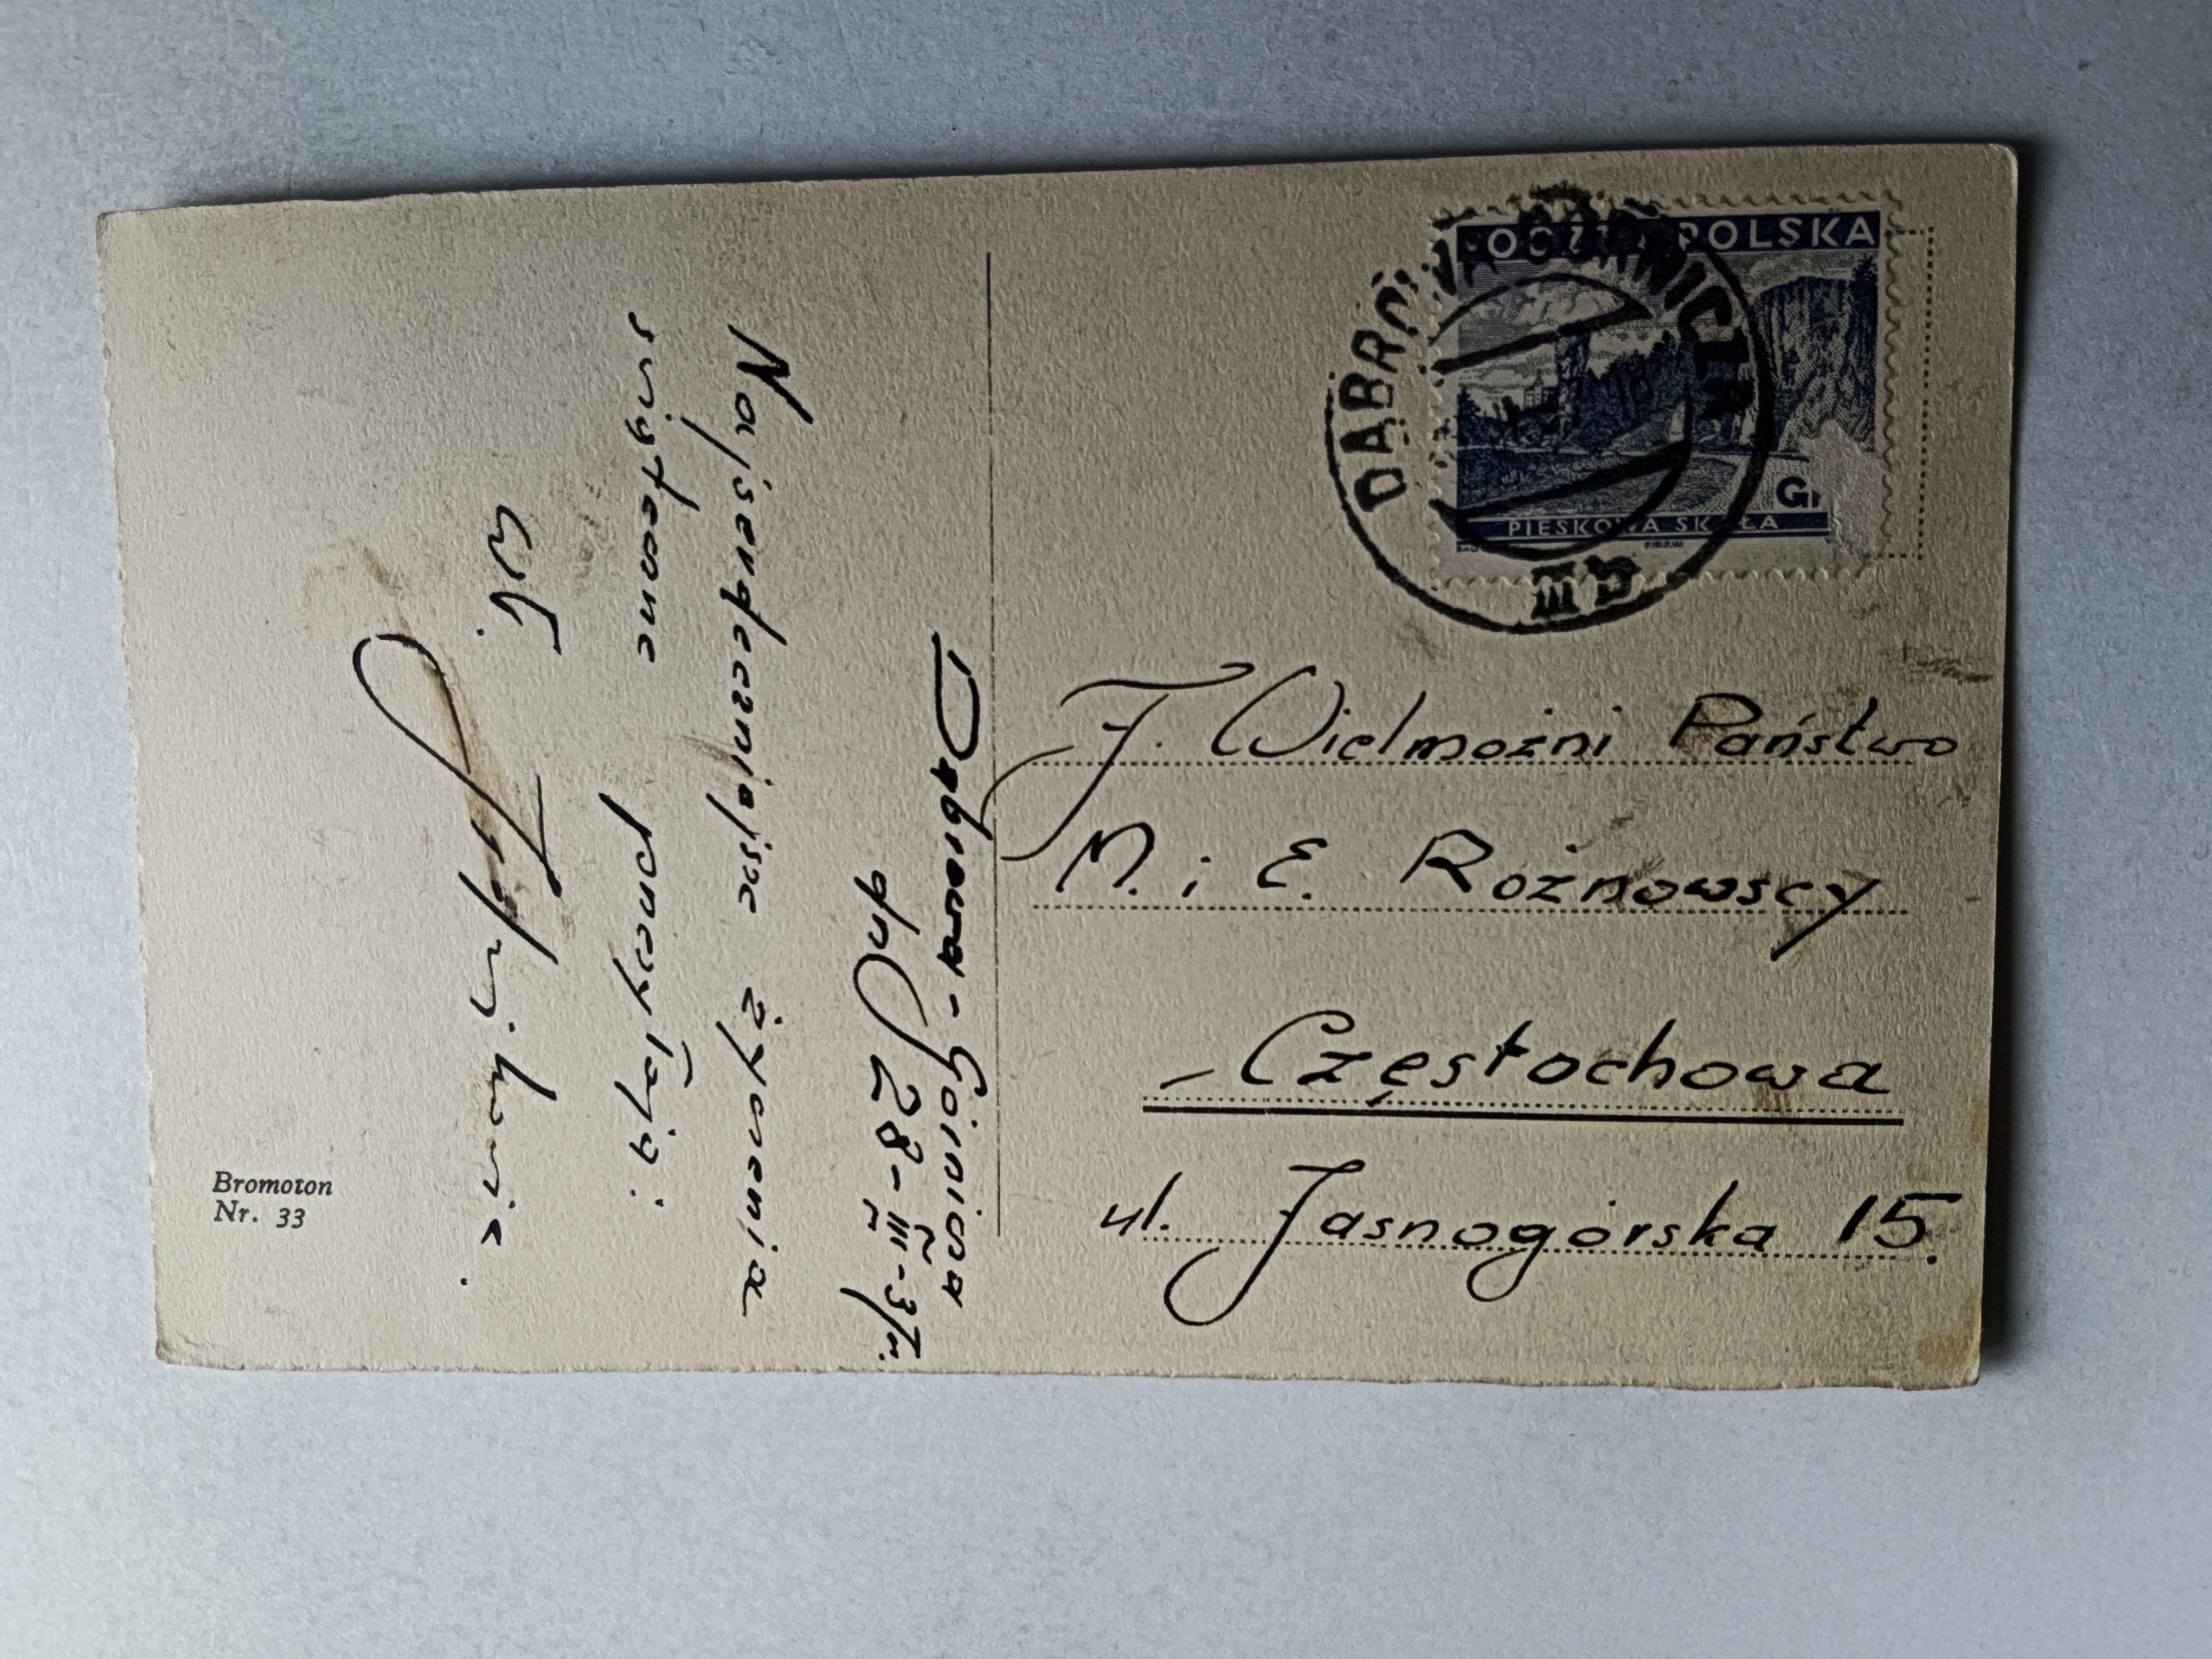 POCZTA POLSKA
GR
PIESKOWA SKAŁA
DĄBROWA GÓRNICZA
Dąbrowa - Górnicza
dn. 28-III-37r.
Najserdeczniejsze życzenia
świąteczne przesyłają:
J. Wielmożni Państwo
M. i E. Rożnowscy
Częstochowa
ul. Jasnogórska 15.
Bromoton
Nr. 33